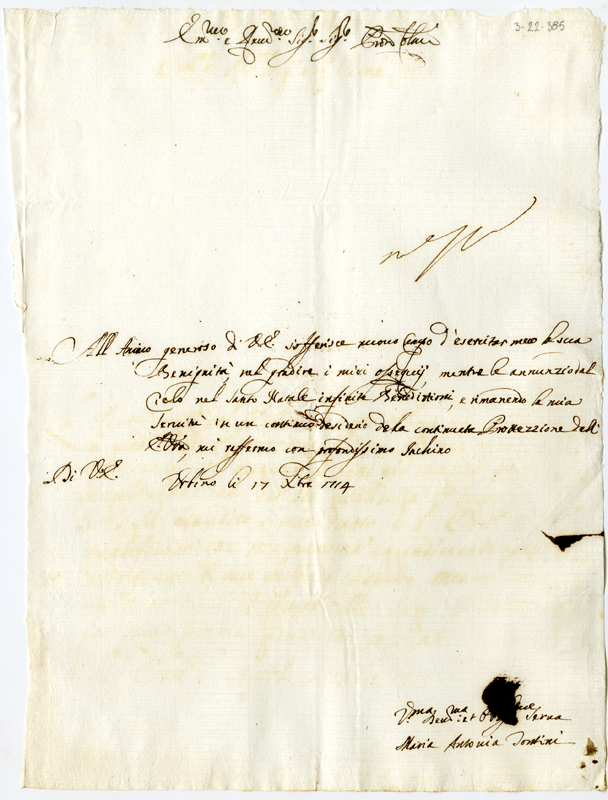 3-22-385
E.mo e Rev.mo Sig.r Sig.r Pron Col.mo
All Animo generoso di V.E. s'offerisce nuovo Campo d'esercitar meco la sua
Benignità nel gradire i miei ossequij, mentre le annunzio dal
Cielo nel Santo Natale infinite Benedizioni, e rimanendo la mia
Servitù in un continuo desiderio della continuata Protezzione dell
E. Vra, mi raffermo con profondissimo Inchino
Di V.E. Urbino li 17 Xbre 1714
V.ma Serva
Maria Antonia